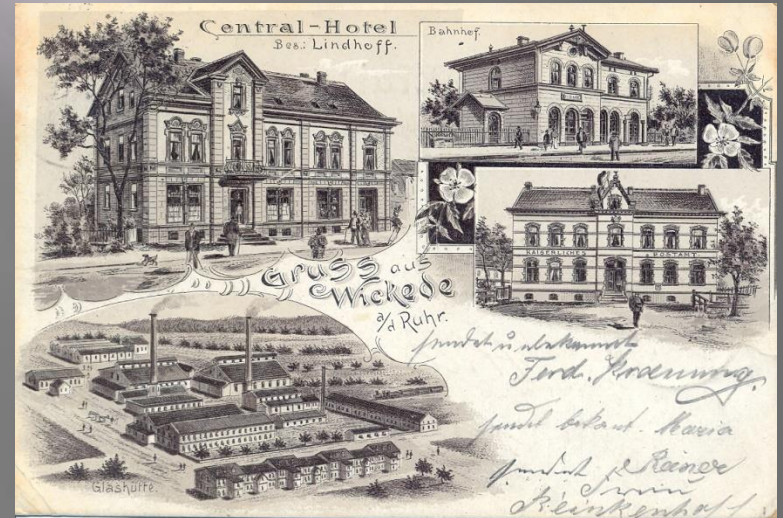 Central-Hotel
Bes.: Lindhoff.
Bahnhof.
KAISERLICHES POSTAMT
Gruss aus
Wickede
a/d Ruhr.
Glashütte.
sendet unbekannt
Ferd.
sendet bekant. Maria
sendet